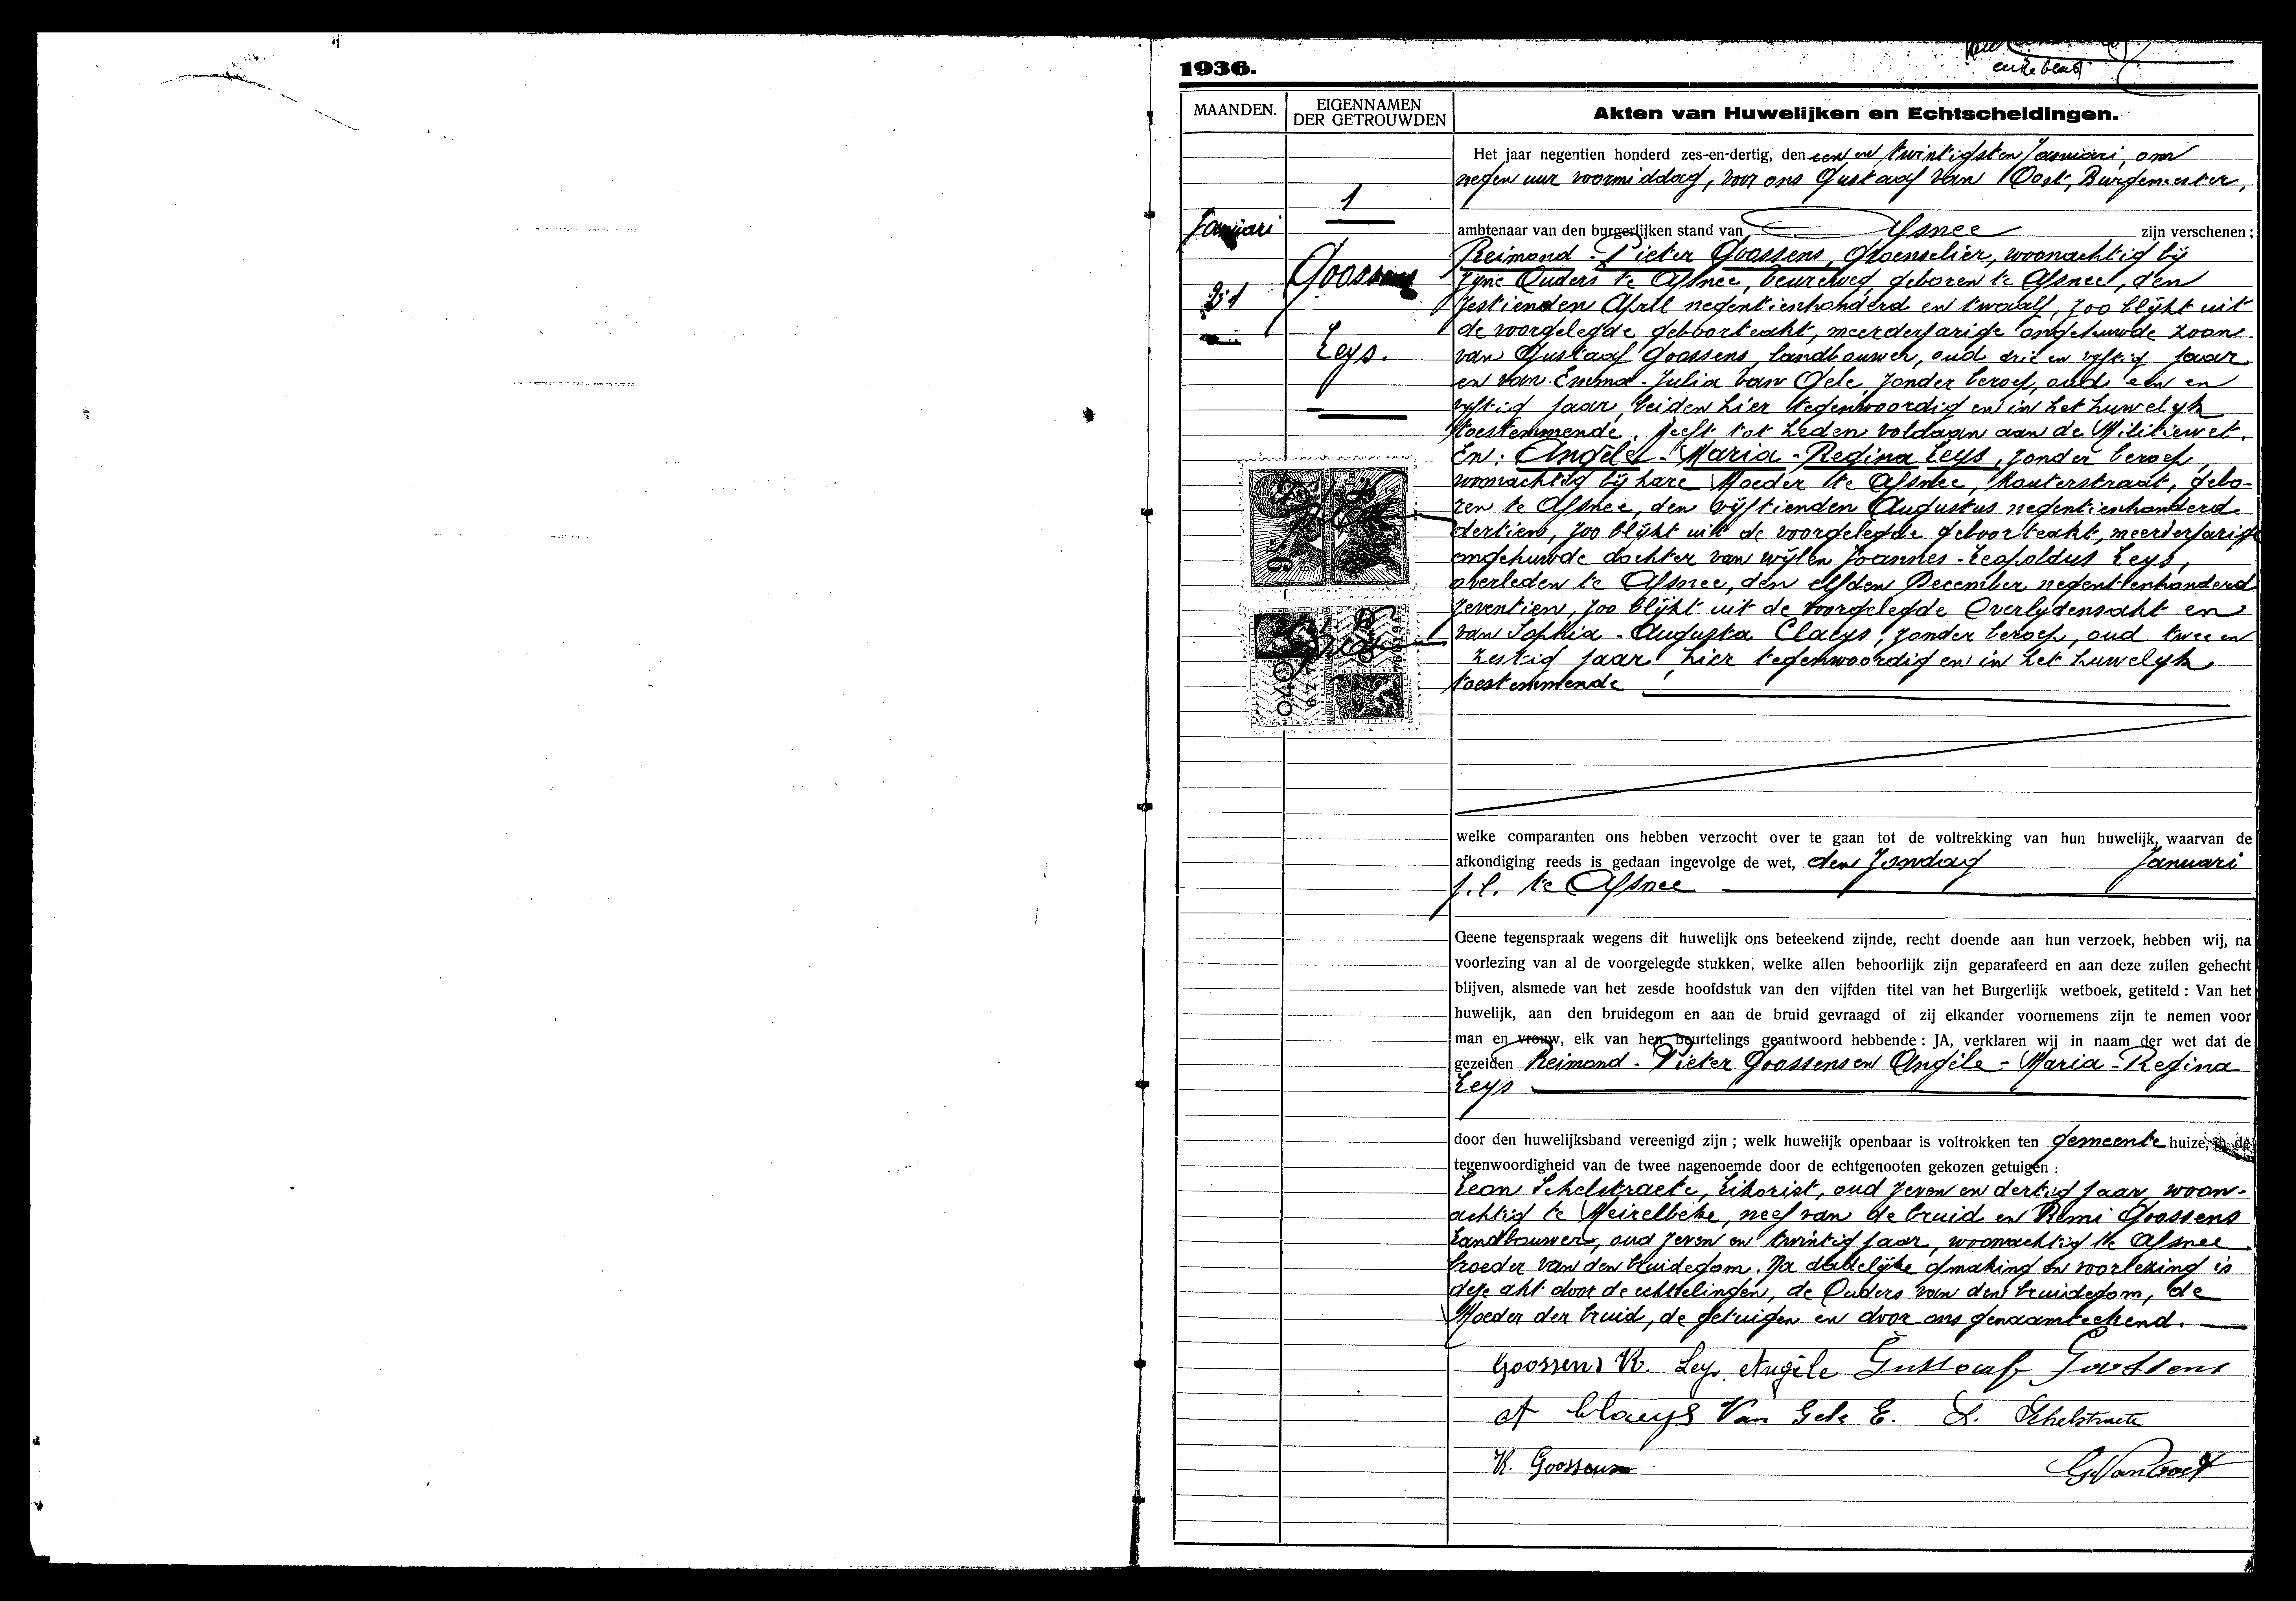 1936.
eerste blad
MAANDEN.
EIGENNAMEN
DER GETROUWDEN
Akten van Huwelijken en Echtscheidingen.
Januari
21
1
Goossens
Leys.
Het jaar negentien honderd zes-en-dertig, den een en twintigsten Januari, om
negen uur voormiddag, voor ons Gustaaf Van Oost, Burgemeester,
ambtenaar van den burgerlijken stand van Afsnee zijn verschenen :
Reimond - Pieter Goossens, groenselier, woonachtig bij
zijne Ouders te Afsnee, beureweg, geboren te Afsnee, den
zestienden April negentienhonderd en twaalf, zoo blijkt uit
de voorgelegde geboorteakt, meerderjarige ongehuwde zoon
van Gustaaf Goossens, landbouwer, oud drie en vyftig jaar
en van Emma - Julia Van Gele, zonder beroep, oud een en
vyftig jaar, beiden hier tegenwoordig en in het huwelyk
toestemmende, heeft tot heden voldaan aan de Militiewet.
En : Angèle - Maria - Regina Leys, zonder beroep,
woonachtig bij hare Moeder te Afsnee, Kouterstraat, gebo-
ren te Afsnee, den vijftienden Augustus negentienhonderd
dertien, zoo blijkt uit de voorgelegde geboorteakt, meerderjarige
ongehuwde dochter van wijlen Joannes - Leopoldus Leys,
overleden te Afsnee, den elfden December negentienhonderd
zeventien, zoo blijkt uit de voorgelegde Overlydensakt en
van Sophia - Augusta Claeys, zonder beroep, oud twee en
zestig jaar, hier tegenwoordig en in het huwelyk
toestemmende
0.40
welke comparanten ons hebben verzocht over te gaan tot de voltrekking van hun huwelijk, waarvan de
afkondiging reeds is gedaan ingevolge de wet, den Zondag Januari
j.l. te Afsnee
Geene tegenspraak wegens dit huwelijk ons beteekend zijnde, recht doende aan hun verzoek, hebben wij, na
voorlezing van al de voorgelegde stukken, welke allen behoorlijk zijn geparafeerd en aan deze zullen gehecht
blijven, alsmede van het zesde hoofdstuk van den vijfden titel van het Burgerlijk wetboek, getiteld : Van het
huwelijk, aan den bruidegom en aan de bruid gevraagd of zij elkander voornemens zijn te nemen voor
man en vrouw, elk van hen beurtelings geantwoord hebbende : JA, verklaren wij in naam der wet dat de
gezeiden Reimond - Pieter Goossens en Angèle - Maria - Regina
Leys
door den huwelijksband vereenigd zijn ; welk huwelijk openbaar is voltrokken ten gemeente huize, in de
tegenwoordigheid van de twee nagenoemde door de echtgenooten gekozen getuigen :
Leon Schelstraete, Likorist, oud zeven en dertig jaar, woon-
achtig te Meirelbeke, neef van de bruid en Remi Goossens
Landbouwer, oud zeven en twintig jaar, woonachtig te Afsnee
broeder van den bruidegom. Na dadelijke opmaking en voorlezing is
deze akt door de echtelingen, de Ouders van den bruidegom, de
Moeder der bruid, de getuigen en door ons genaamteekend.
Goossens R. Leys Angèle Gustaaf Goossens
A Claeys Van Gele E. L. Schelstraete
R. Goossens G. Van Oost